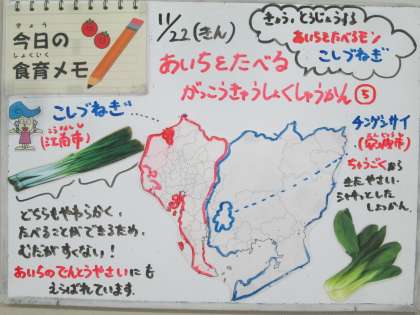 きょう
今日の
しょくいく
食育メモ
11/22(きん)
きょう、とうじょうする
あいちをたべるモン
こしづねぎ
あいちをたべる
がっこうきゅうしょくしゅうかん⑤
こしづねぎ
こうなんし
(江南市)
チンゲンサイ
(安城市)
ちゅうごくから
きたやさい。
シャキッとした
しょっかん。
どちらもやわらかく、
たべることができるため、
むだがすくない!
あいちのでんとうやさいにも
えらばれています。